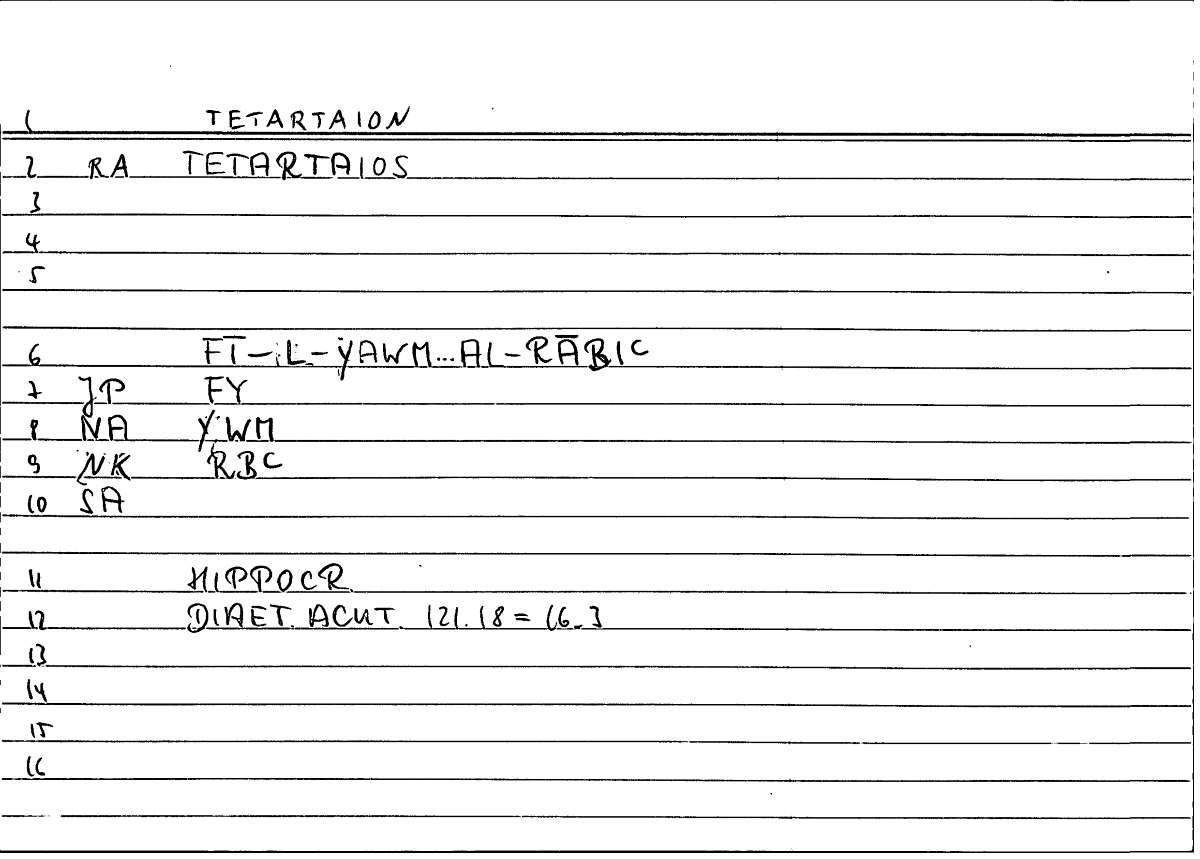 1 TETARTAION
2 RA TETARTAIOS
3
4
5
6 FĪ-L-YAWM...AL-RĀBIC
7 JP FY
8 NA YWM
9 NK RBC
10 SA
11 HIPPOCR.
12 DIAET. ACUT. 121.18 = 16.3
13
14
15
16